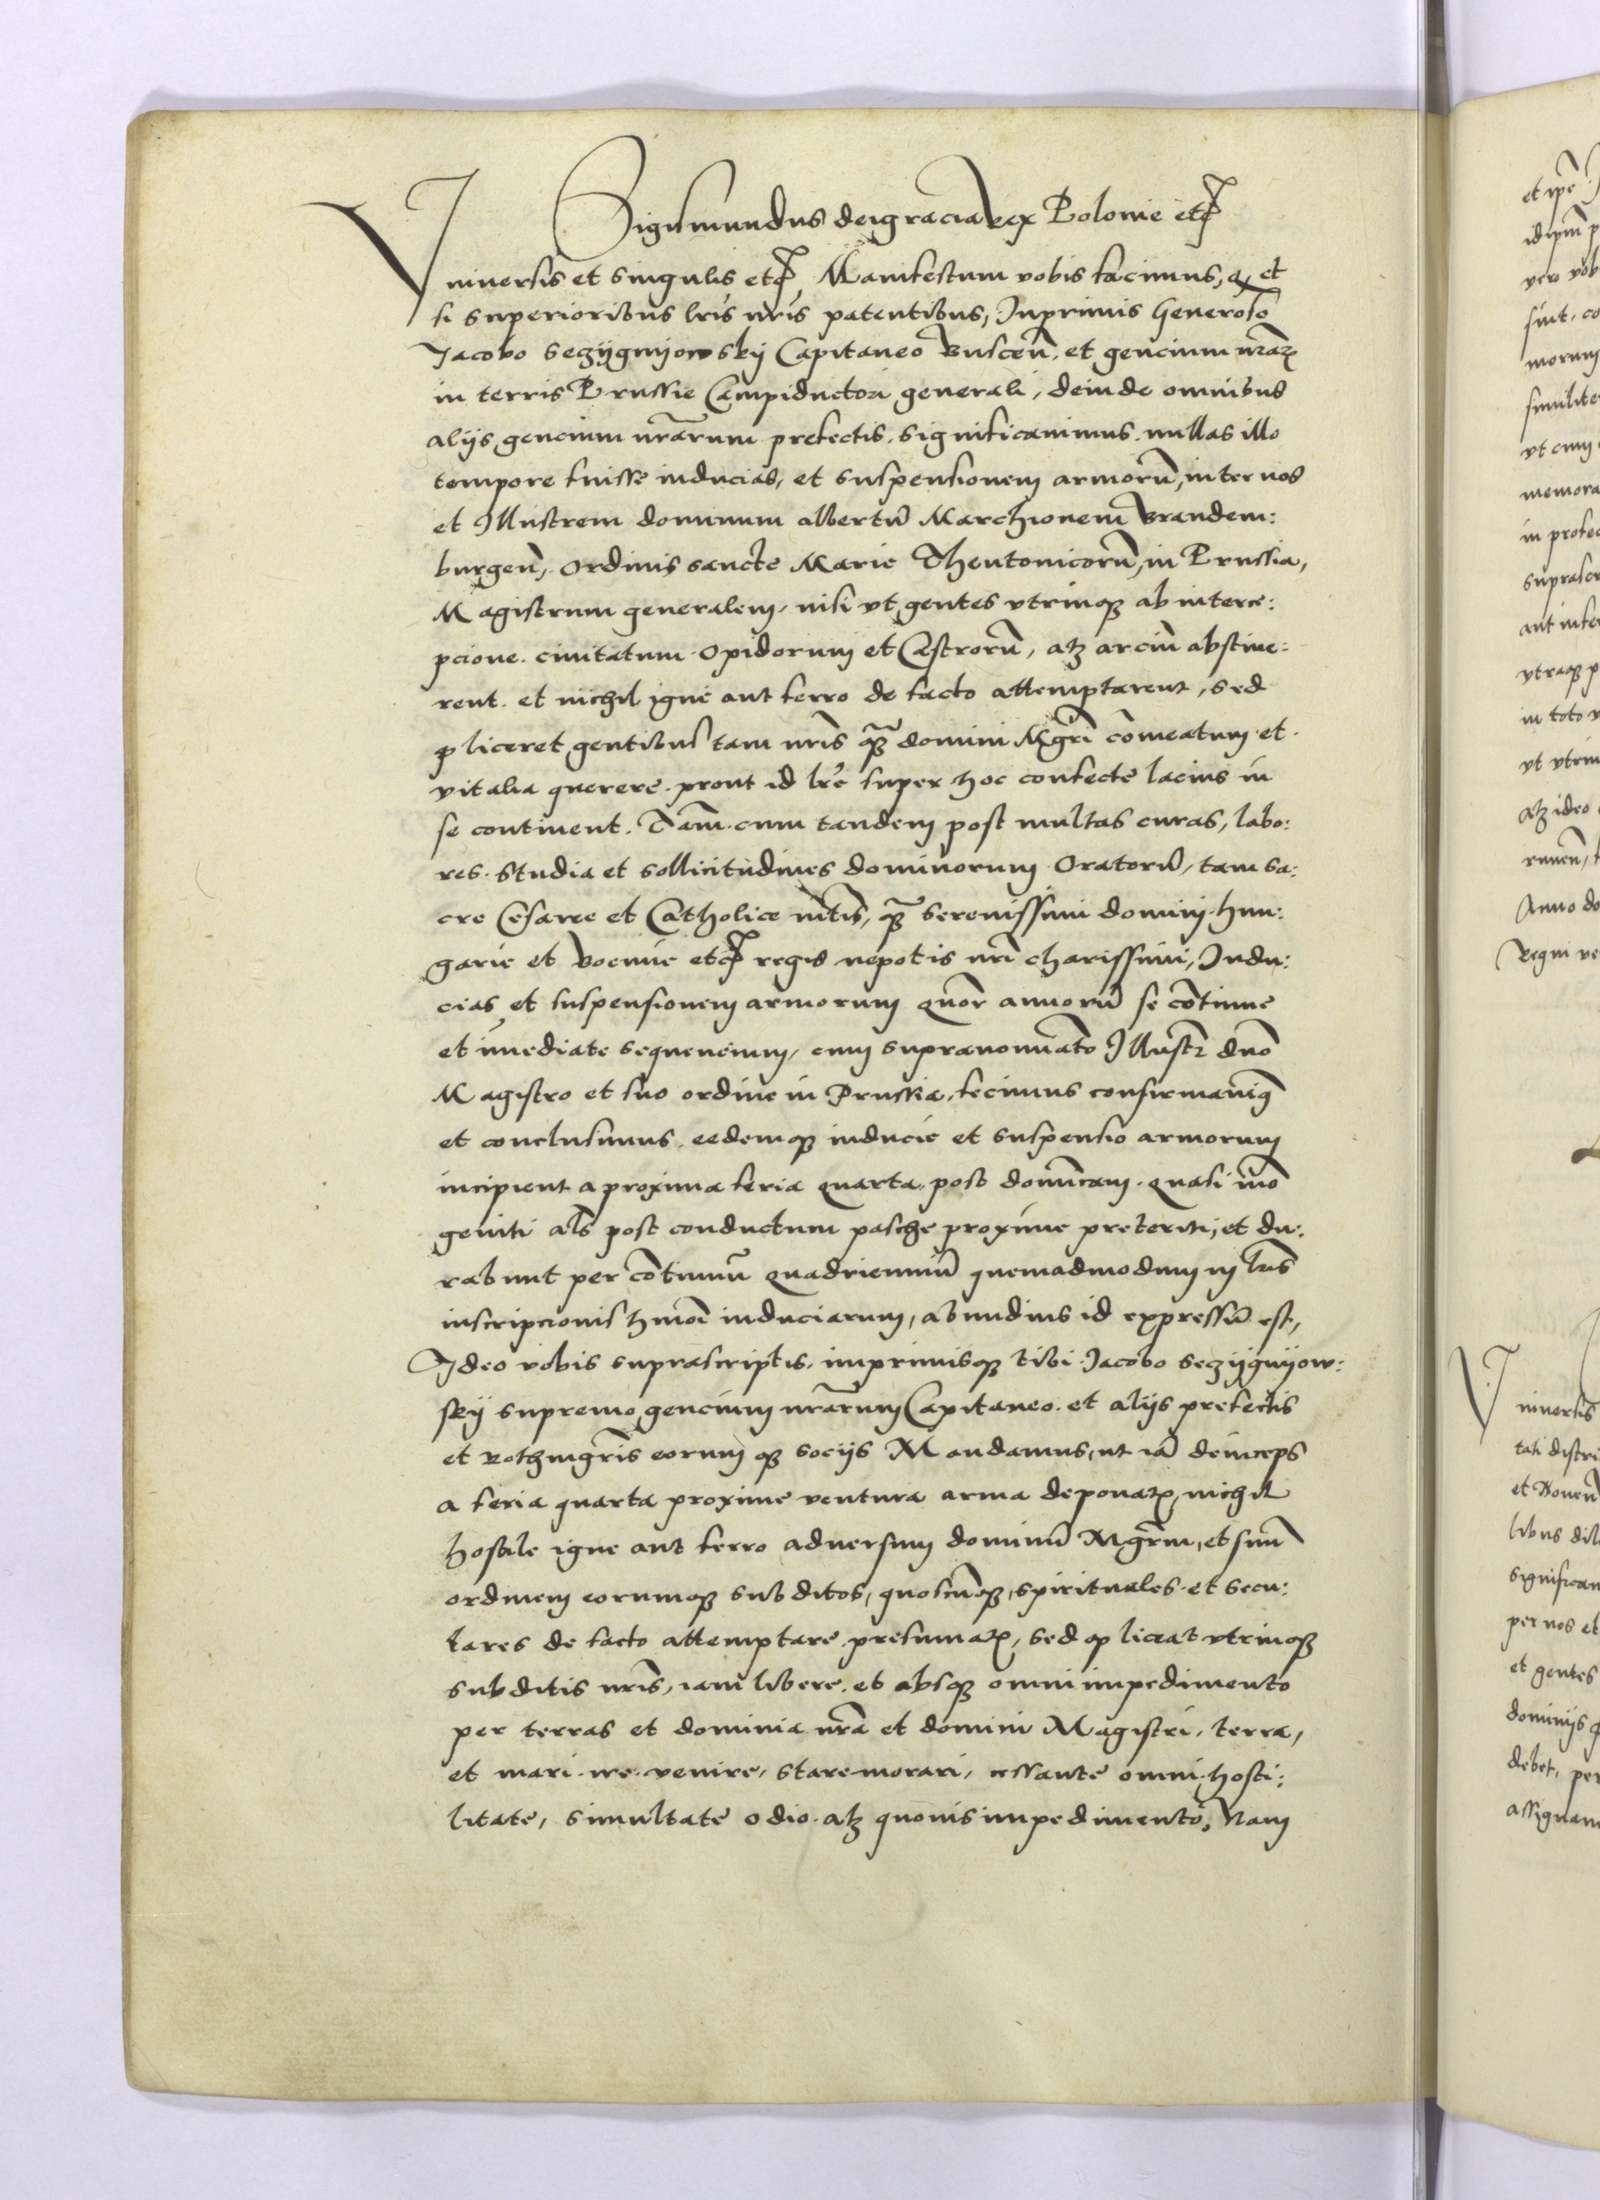 Sigismundus dei gracia Rex Polonie etc̃
Vniuersis et singulis etc̃, Manifestum vobis facimus, q et
si superioribus lr̃is nr̃is patentibus, Inprimis Generoso
Jacobo Seczÿgnÿowskÿ Capitaneo Buscen̄. et gencium nr̃aꝝ
in terris Prussie Campiductori generali, deinde omnibus
alijs gencium nr̃arum prefectis. significauimus. nullas illo
tempore fuisse inducias, et suspensionem armorū, inter nos
et Illustrem dominum albertū Marchionem Brandem:
burgen̄, Ordinis sancte Marie Theutonicorū, in Prussia,
Magistrum generalem, nisi vt gentes vtrinqꝫ ab interce:
pcione. ciuitatum Opidorum et Castrorū, atqꝫ arciū abstine:
rent. et nichil igne aut ferro de facto attemptarent, sed
ꝙ liceret gentibus tam nr̃is qꝫ̄ domini Mgr̃i com̄eatum et
vitalia querere. prout id lr̃e super hoc confecte lacius in
se continent. Tam̄. cum tandem post multas curas, labo:
res. Studia et sollicitudines dominorum Oratorū, tam Sa:
cre Cesaree et Catholice mt̃is, qꝫ̄ Serenissimi domini Hun:
garie et Boemie etc̃ regis nepotis nr̃i charissimi, Indu:
cias et suspensionem armorum quor̄ annorū se cōtinue
et im̄ediate sequencium, cum supranominato Illustri dn̄o
Magistro et suo ordine in Prussia, fecimus confirmauimꝗ
et conclusimus. eedemqꝫ inducie et suspensio armorum
incipient a proxima feria quarta post dominicam. quasi mō
geniti al̄s post conductum pasche proxime preteriti, et du:
rabunt per cōtinuū quadrienniū quemadmodum in lr̃is
inscripcionis hmōi induciarum, abundius id expressū est,
Ideo vobis suprascriptis, imprimisqꝫ tibi Jacobo Seczÿgnÿow:
skÿ supremo gencium nr̃arum Capitaneo. et alijs prefectis
et Rothmgr̃is eorum qꝫ socijs Mandamus, ut iā deinceps
a feria quarta proxime ventura arma deponatꝫ, nichil
hostile igne aut ferro aduersum dominū Mgr̃m, et suū
ordinem eorumqꝫ subditos, quoscūqꝫ, spirituales et secu:
lares de facto attemptare presumatꝫ, sed ꝙ liceat vtrinqꝫ
subditis nr̃is, iam libere. et absqꝫ omni impedimento
per terras et dominia nr̃a et domini Magistri, terra,
et mari ire venire, stare morari, cessante omni hosti:
litate, simultate odio atqꝫ quouis impedimento, Nam
et ipē
idipm̄ p
vero vob
sint. co
morum
similite
vt cum
memora
in profec
suprascr
aut infer
vtraqꝫ p
in toto
vt vtrin
Atqꝫ ideo
runen̄,
Anno do
Regni ve
Vniuersis
tati distri
et Nouen̄
libus dil
significam
per nos et
et gentes
dominijs
debet, per
assignam